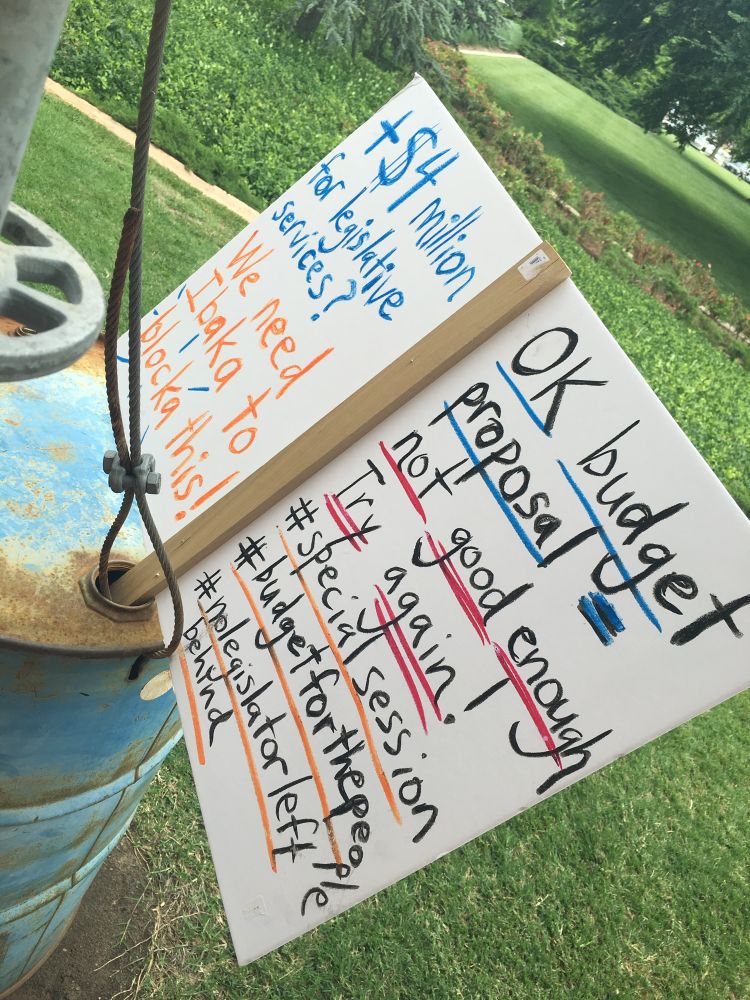 + $4 million
for legislative
services?
We need
Ibaka to
blocka this!
OK budget
proposal =
not good enough
Try again!
#special session
#budgetforthepeople
#nolegislatorleft
behind